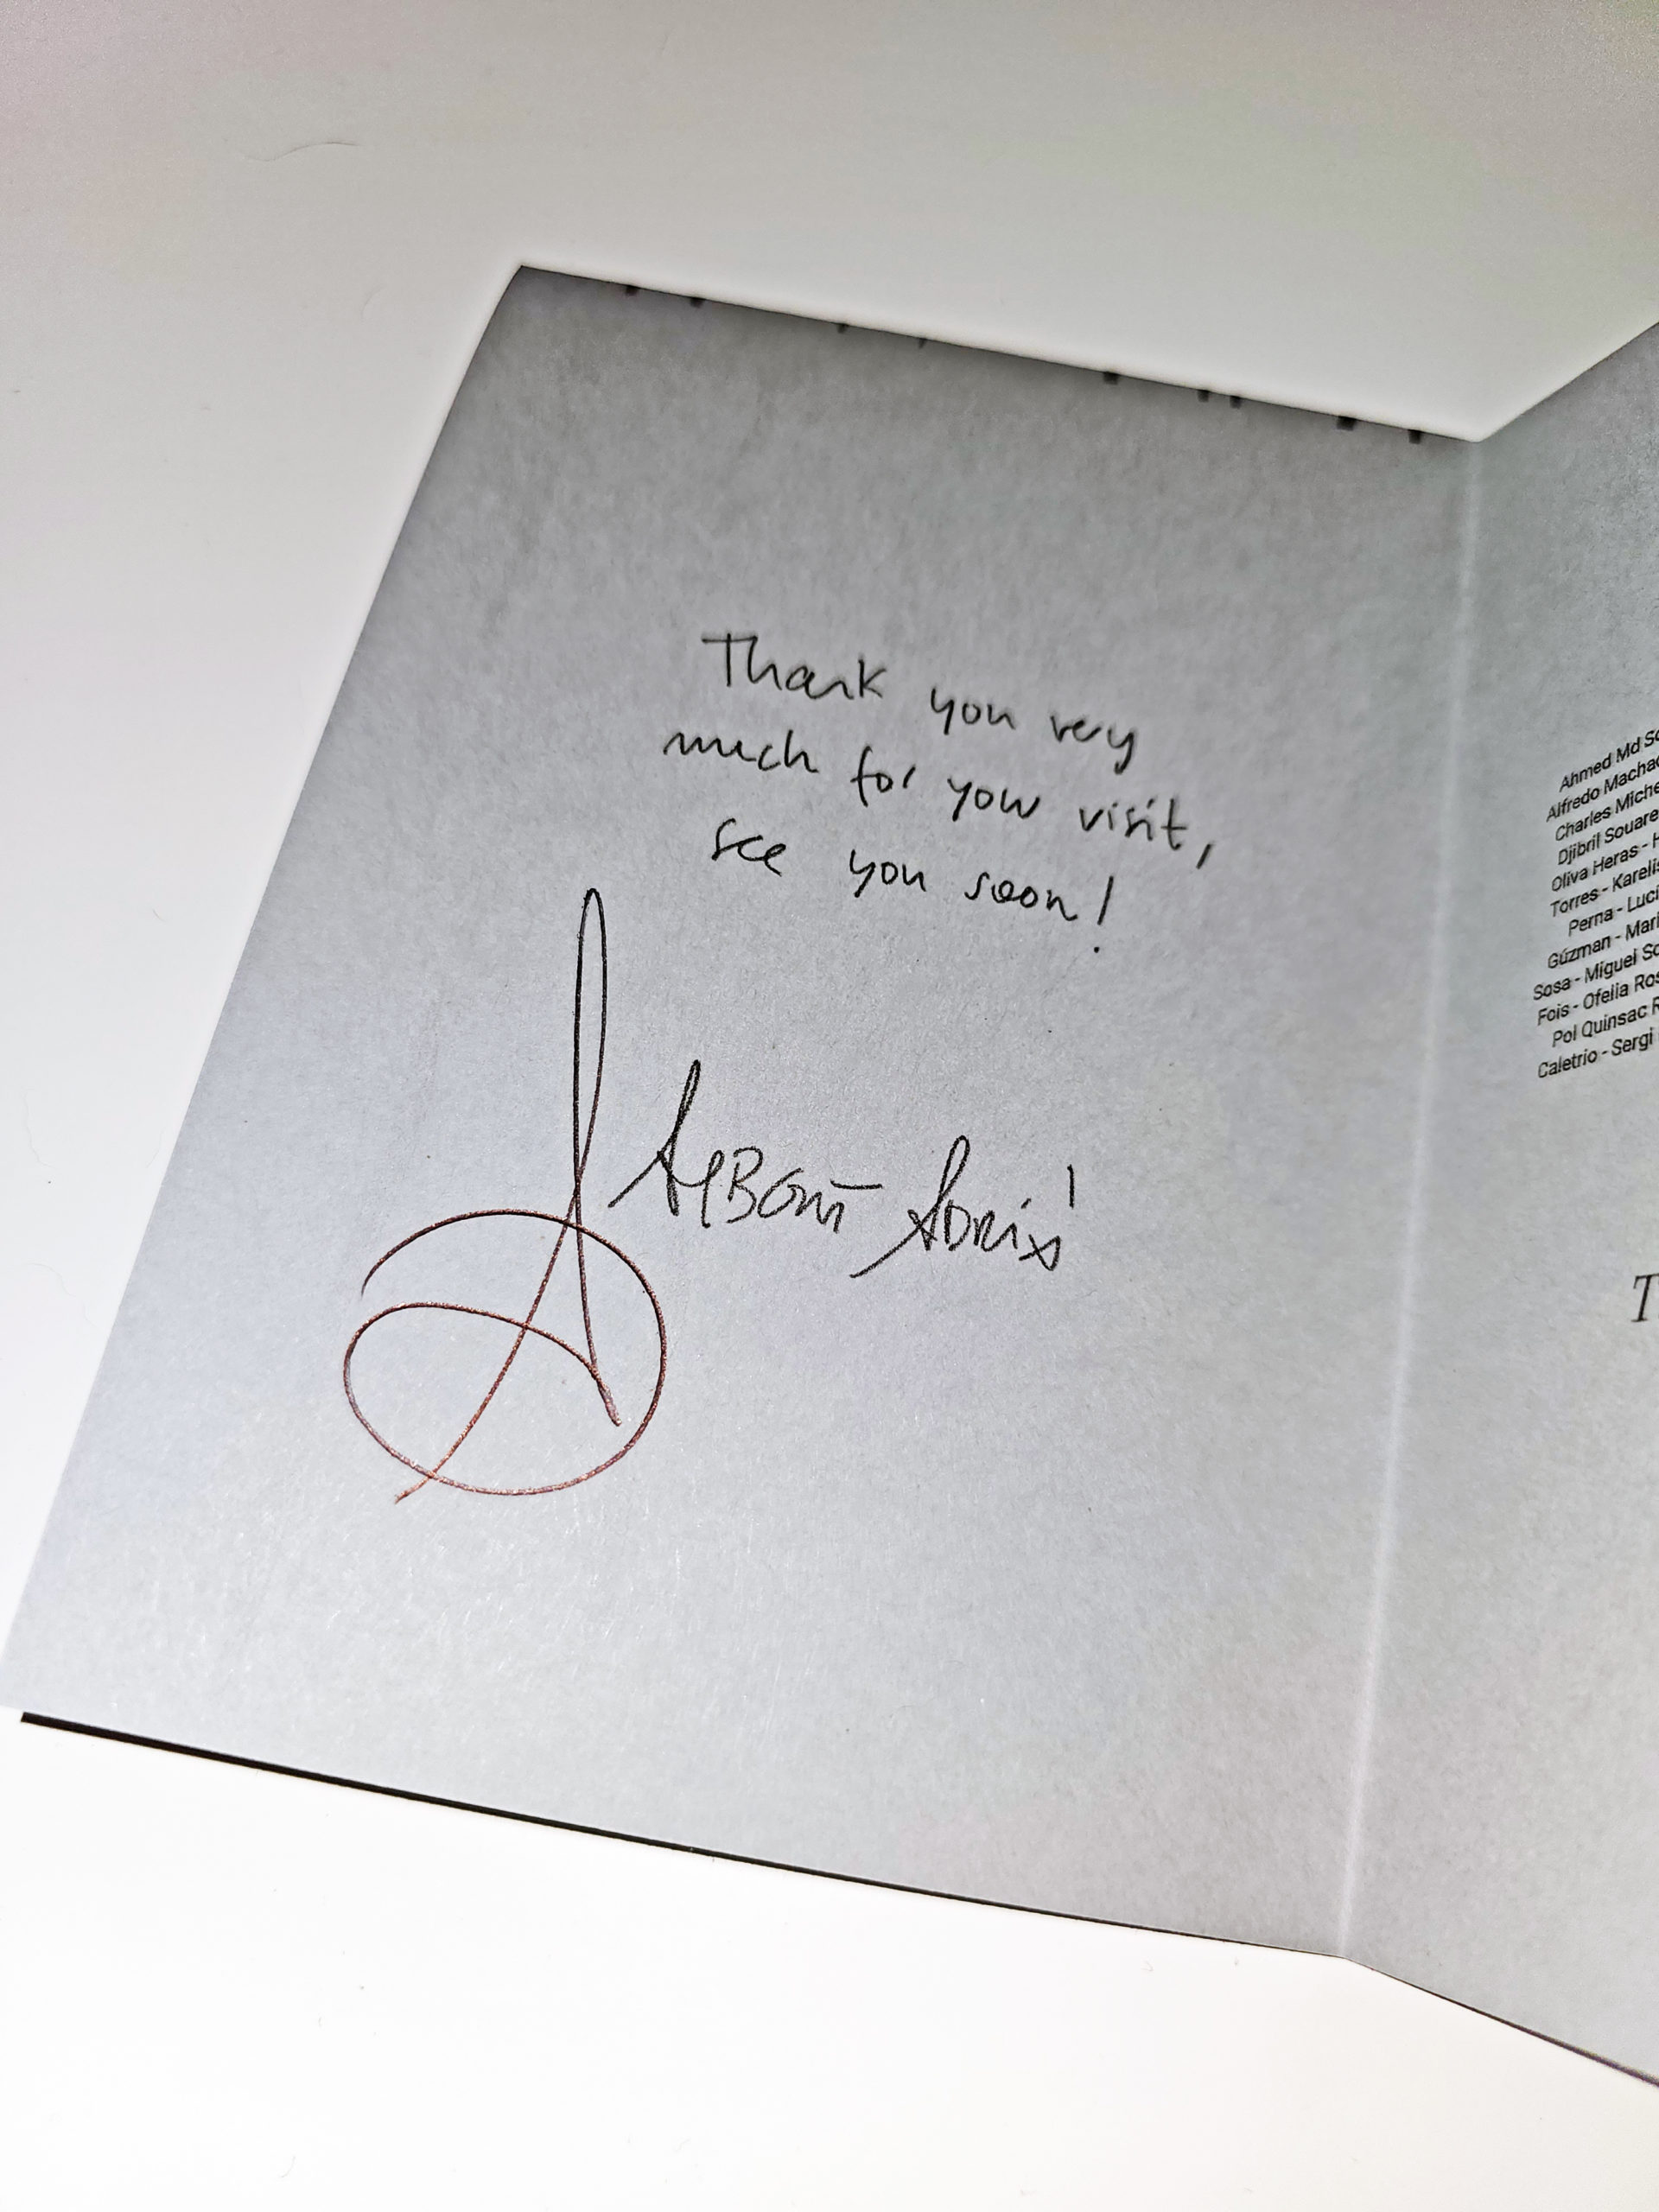 Thank you very
much for your visit,
see you soon!
Albert Adrià
Ahmed Md
Alfredo
Charles
Djibril Souare
Oliva Heras -
Torres - Karelis
Perna -
Gúzman -
Sosa - Miguel
Fois - Ofelia
Pol Quinsac
Caletrio - Sergi
T